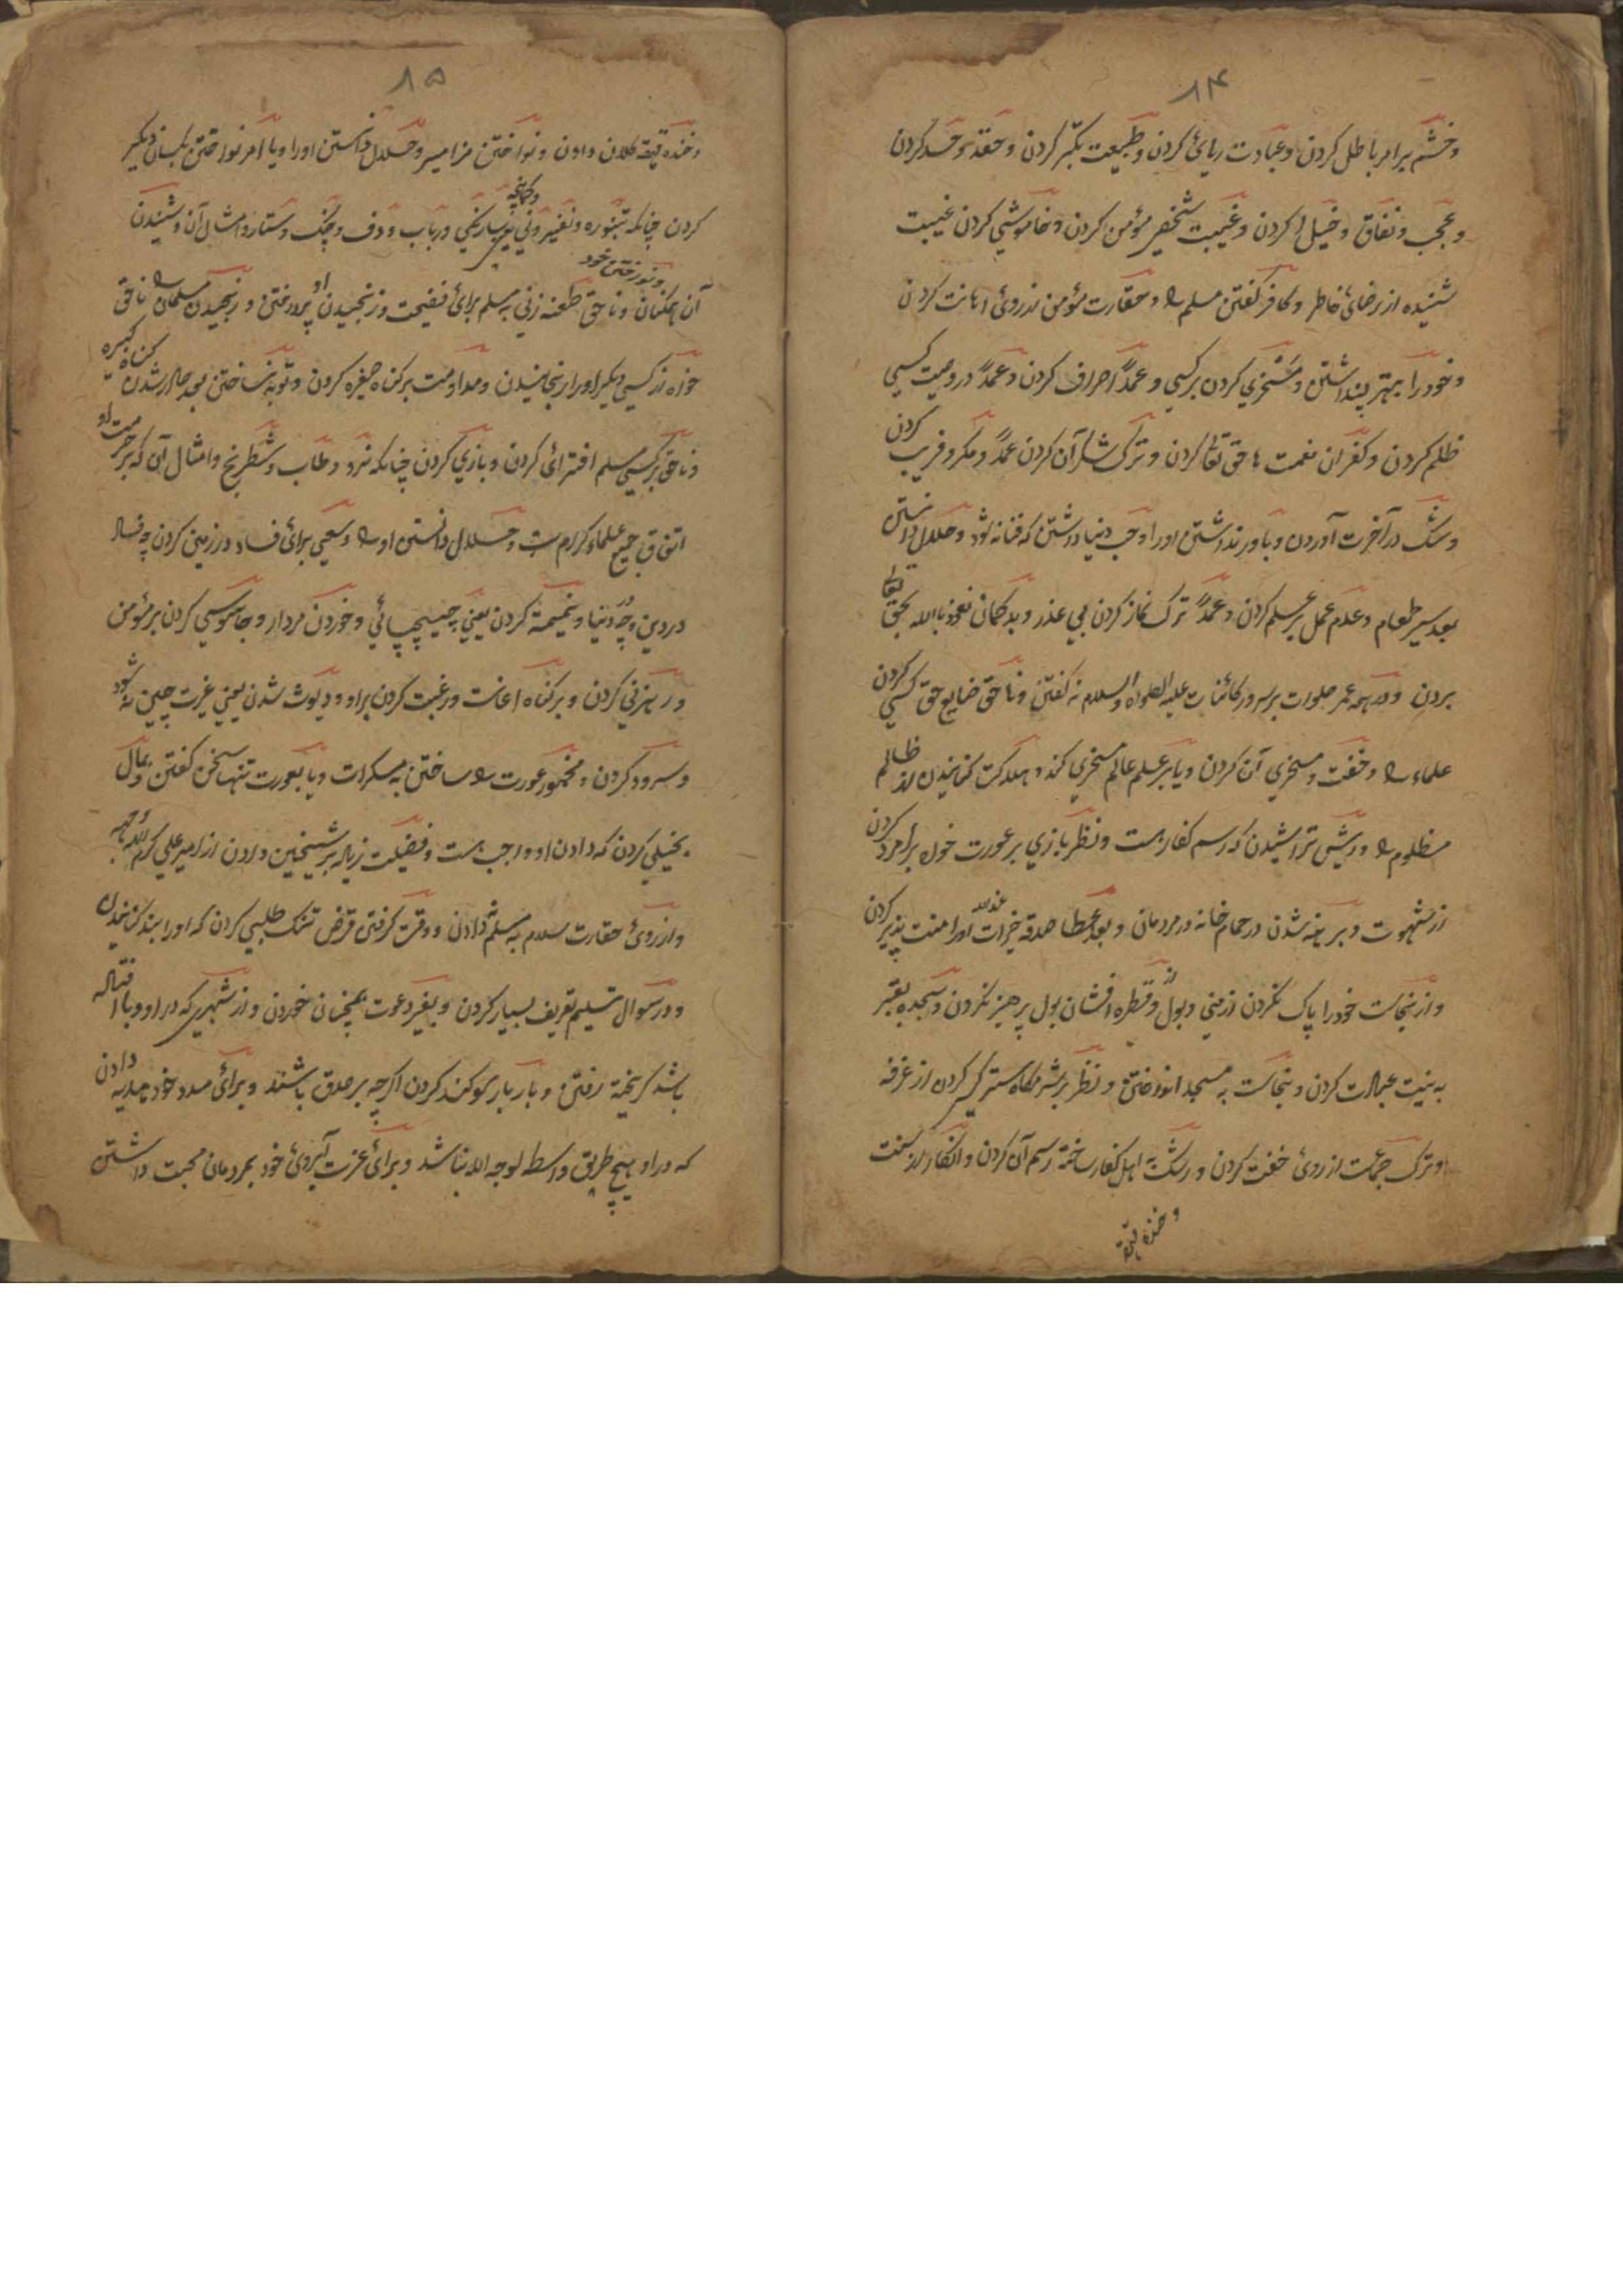 ۸۴
وخشم برامر باطل کردن وعبادت ریائ کردن وطبیعت تکبّر کردن وحقد وحسد کردن
وعجب ونفاق وخیلا کردن وغیبت شخص مؤمن کردن وخاموشی کردن غیبت
شنیده از رضائ خاطر وکافر گفتن مسلم را وحقارت مؤمن ازروئ اهانت کردن
وخود را بهتر پنداشتن ومسخری کردن برکسی وعمدًا اصراف کردن وعمدًا در وصیت کسی
ظلم کردن وکفران نعمت حق تعالی کردن وترک شکر آن کردن عمدًا ومکر وفریب کردن
وشک در آخرت آوردن وباور نداشتن اورا وحب دنیا داشتن که فنا نه شود وحلال دانستن
بعد سیر طعام وعدم عمل بر علم کردن وعمدًا ترک نماز کردن بی عذر وبدگمان نعوذ باالله بحق تعالی
بردن ودر همه عمر صلوات برسرور کائنات علیه الصلواة والسلام نه گفتن وناحق ضایع حق کسی کردن
علماء را وخفت ومسخری آن کردن ویا بر علم عالم مسخری کند وهلاکت کنانیدن از ظالم
مظلوم را وریش تراشیدن که رسم کفار ست ونظر بازی بر عورت خواه برامرد کردن
از شهوت وبرهنه شدن در حمام خانه در مردمان وبعد عطا صدقه خیرات اورا منت پذیر کردن
واز نجاست خود را پاک نکردن از منی وبول واز قطره افشان بول پرهیز نکردن وسجده بقبر
به نیت عبادت کردن ونجاست به مسجد انداختن ونظر بر شرمگاه ستر کسی کردن از غرفه
وترک جماعت از روئ خفت کردن و رشته اهل کفار ساخته رسم آن کردن وانکار از سنت
وخنده قهقه
۸۵
وخنده قهقه کلان دادن ونواختن مزامیر وحلال دانستن اورا ویا امر نواختن بکسان دیگر
کردن چنانکه تنبوره ونفیر ونی وکمانچه سارنگی ورباب ودف وچنگ وستار وامثال آن وشنیدن
آن همکنان وناحق طعنه زنی به مسلم برائ فضیحت ورنجیدن او پدر وختن خود ورنجیدن مسلمان را ناحق
خواه از کسی دیگر اورا رنجانیدن ومداومت بر گناه صغیره کردن وتوبه نساختن بعد صادر شدن گناه کبیره
وناحق بر کسی مسلم افترائ کردن وبازی کردن چنانکه نرد وطاب وشطرنج وامثال آن که بر حرمت او
اتفاق جمیع علماء کرام ست وحلال دانستن او را وسعی برائ فساد در زمین کردن چه فساد
در دین وچه دنیا ونمیمة کردن یعنی وخوردن مردار وجاسوسی کردن بر مؤمن
ورهزنی کردن وبر گناه اعانت ورغبت کردن براو ودیوث شدن یعنی غیرت چین نه شود
وسرود کردن ومخمور عورت را ساختن به مسکرات ویا بعورت تنها سخن گفتن وبمال
بخیلی کردن که دادن او واجب ست وفضیلت زیاده بر شیخین دادن از امیر علی کرم الله وجهه
واز روئ حقارت سلام به مسلم ندادن ووقت گرفتن قرض تنگ طلبی کردن که اورا بند کنانیدن
ودر سوال تسلیم تعریف بسیار کردن وبغیر دعوت همچنان خوردن واز شهری که در او وبا افتاده
باشد گریخته رفتن وبار بار سوگند کردن اگرچه بر صدق باشند وبرائ مدد خود هدیه دادن
که در او هیچ طریق واسط لوجه الله نباشد وبرائ عزت آبروئ خود بمردمان محبت داشتن